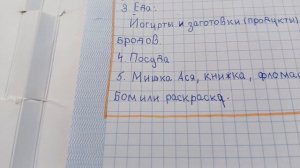 3. Еда:
Йогурты и заготовки (продукты)
бродов.
4. Посуда
5. Мишка Ася, книжка, флома
Бом или раскраска.